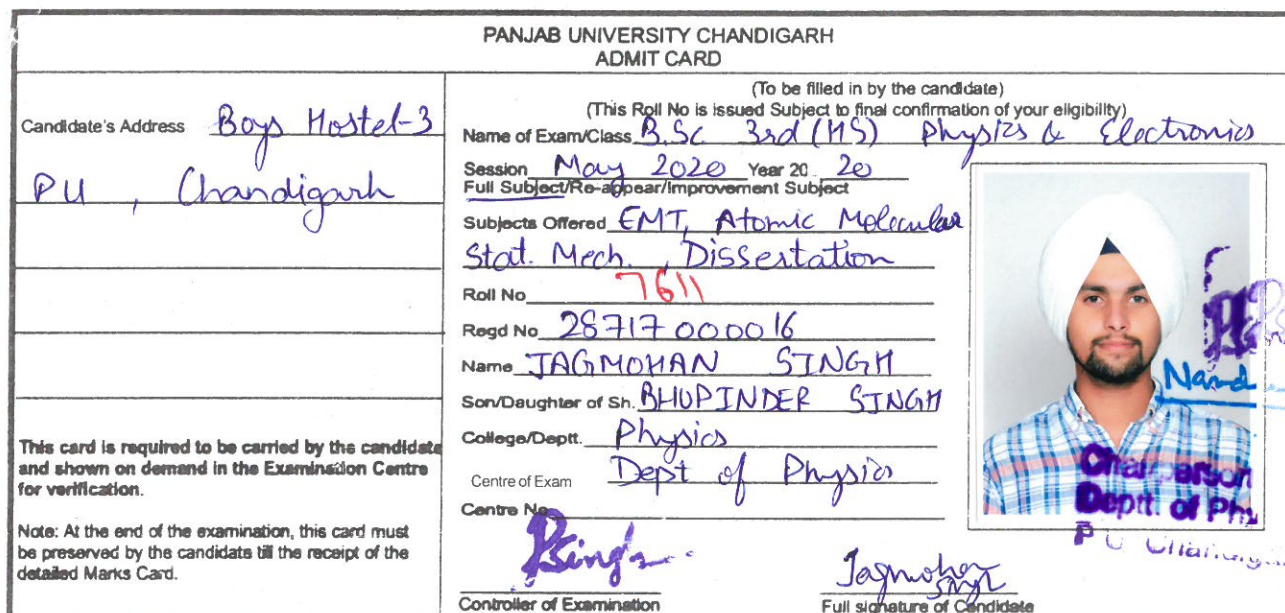 PANJAB UNIVERSITY CHANDIGARH
ADMIT CARD
Candidate's Address Boys Hostel-3
PU, Chandigarh
This card is required to be carried by the candidate
and shown on demand in the Examination Centre
for verification.
Note: At the end of the examination, this card must
be preserved by the candidate till the receipt of the
detailed Marks Card.
(To be filled in by the candidate)
(This Roll No is issued Subject to final confirmation of your eligibility)
Name of Exam/Class B.Sc 3rd (HS) Physics & Electronics
Session May 2020 Year 20 20
Full Subject/Re-appear/Improvement Subject
Subjects Offered EMT, Atomic Molecular
Stat. Mech., Dissertation
Roll No 7611
Regd No 28717000016
Name JAGMOHAN SINGH
Son/Daughter of Sh. BHUPINDER SINGH
College/Deptt. Physics
Centre of Exam Dept of Physics
Centre No
Controller of Examination
Jagmohan
Singh
Full signature of Candidate
Chairperson
Deptt. of Phy
P U Chandig